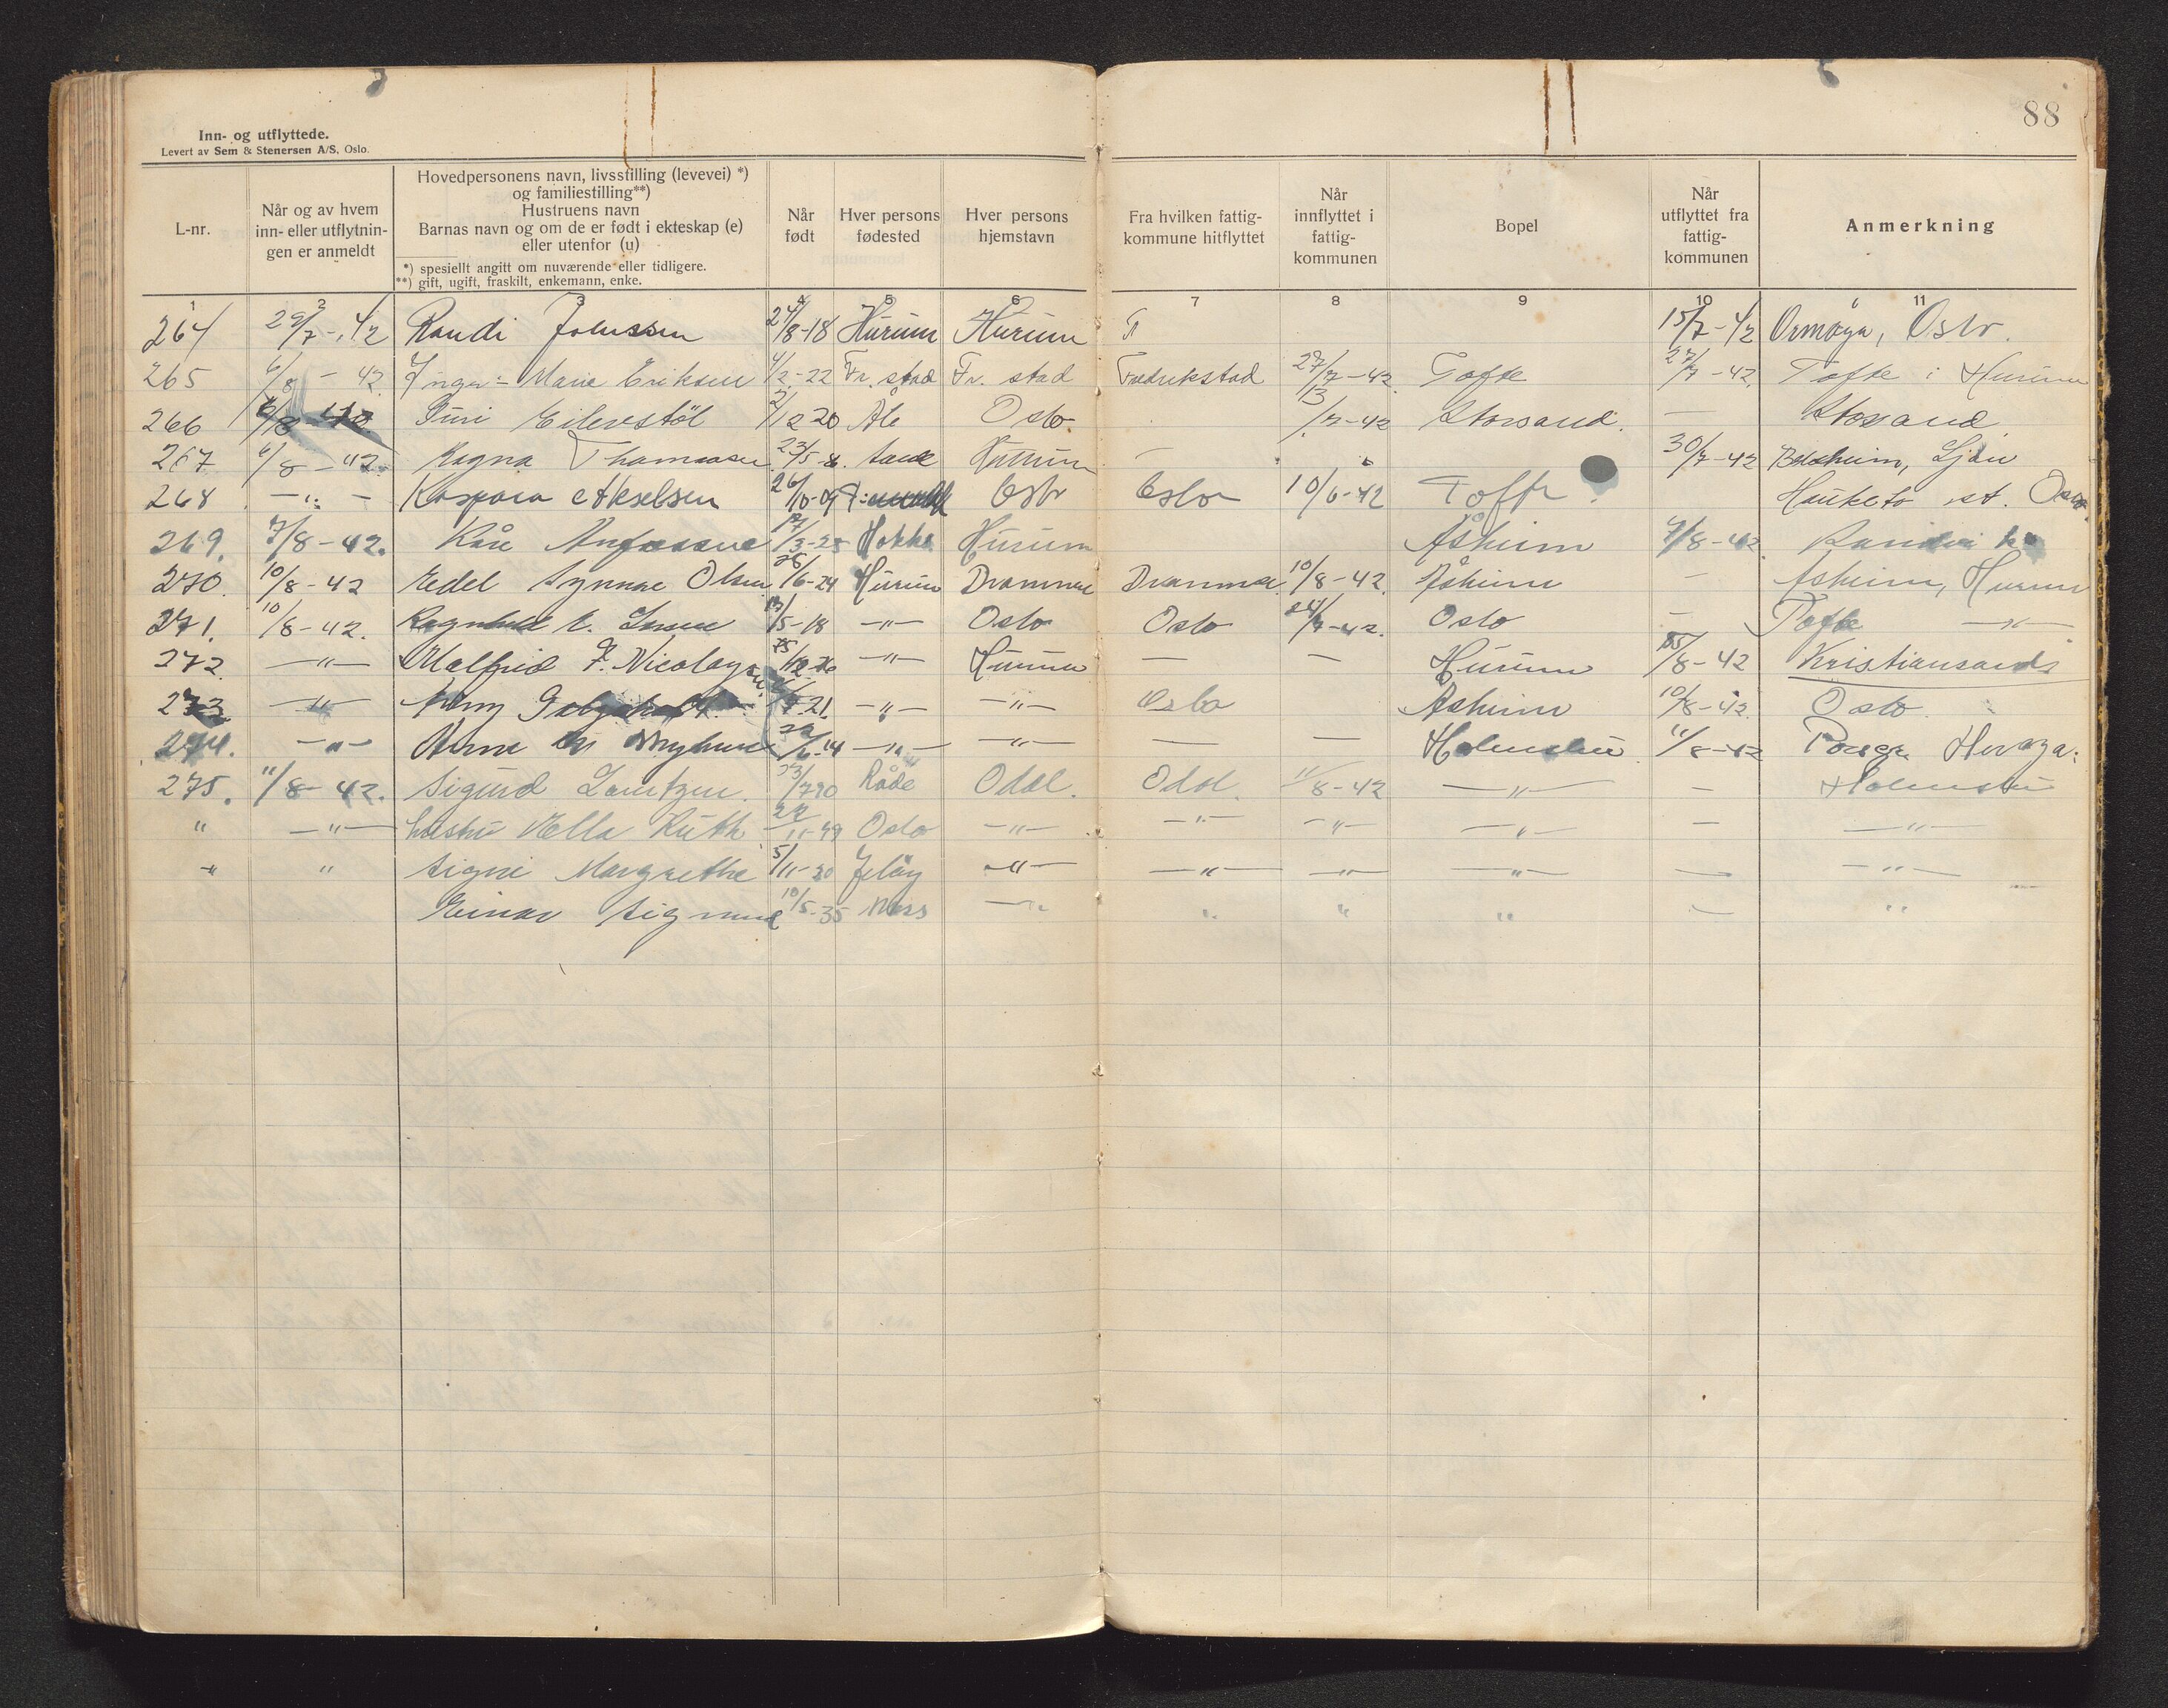 88
Inn- og utflyttede.
Levert av Sem & Stenersen A/S, Oslo.
L-nr.
Når og av hvem
inn- eller utflytnin-
gen er anmeldt
Hovedpersonens navn, livsstilling (levevei) *)
og familiestilling**)
Hustruens navn
Barnas navn og om de er født i ekteskap (e)
eller utenfor (u)
*) spesiellt angitt om nuværende eller tidligere.
**) gift, ugift, fraskilt, enkemann, enke.
Når
født
Hver persons
fødested
Hver persons
hjemstavn
Fra hvilken fattig-
kommune hitflyttet
Når
innflyttet i
fattig-
kommunen
Bopel
Når
utflyttet fra
fattig-
kommunen
Anmerkning
1 2 3 4 5 6 7 8 9 10 11
264 29/7-42 Randi Johnssen 24/8-18 Hurum Hurum 15/7-42 Ormøya, Oslo.
265 6/8 - 42 Inger-Marie Eriksen 4/2-22 Fr. stad Fr. stad Fredrikstad 27/7-42 Tofte 27/7-42 Tofte i Hurum
266 Guri Eilevstøl 2/12 20 Ål Oslo. /7-42 Storsand. — Storsand
267 6/8-42. Ragna Thomassen 23/5-8. Hurum — 30/7-42 Ljan
268 —"— Kaspara Akselsen 26/10-09 Oslo Oslo 10/6-42 Tofte Hauketo st. Oslo.
269. 7/8-42. Kåre 17/3-25 Hurum Åsheim 7/8-42
270. 10/8-42 Edel Synnøve Olsen 26/6-24 Hurum Drammen Drammen 10/8-42. Åsheim — Åsheim, Hurum
271. 10/8-42. Ragnhild E. 13/5-18 —"— Oslo Oslo 24/7-42. Oslo — Tofte —"—
272. —"— Malfrid F. Nicolaysen —"— Hurum — — Hurum /8-42 Kristiansands
273 —"— 21. —"— —"— Oslo Åsheim 10/8-42. Oslo
274. —"— Anna 22/6-14 —"— —"— — — Holmsbu 11/8-42
275. 11/8-42. Sigurd Lauritzen. Råde Odal. Odal. 11/8-42 —"— — Holmsbu
" —"— hustru Ella Ruth Oslo —"— —"— —"— —"— — —"—
" " Signe Margrethe 5/11-30 Jeløy —"— —"— —"— —"— — —"—
Einar Sigmund 10/5-35 Moss —"— " " " — "